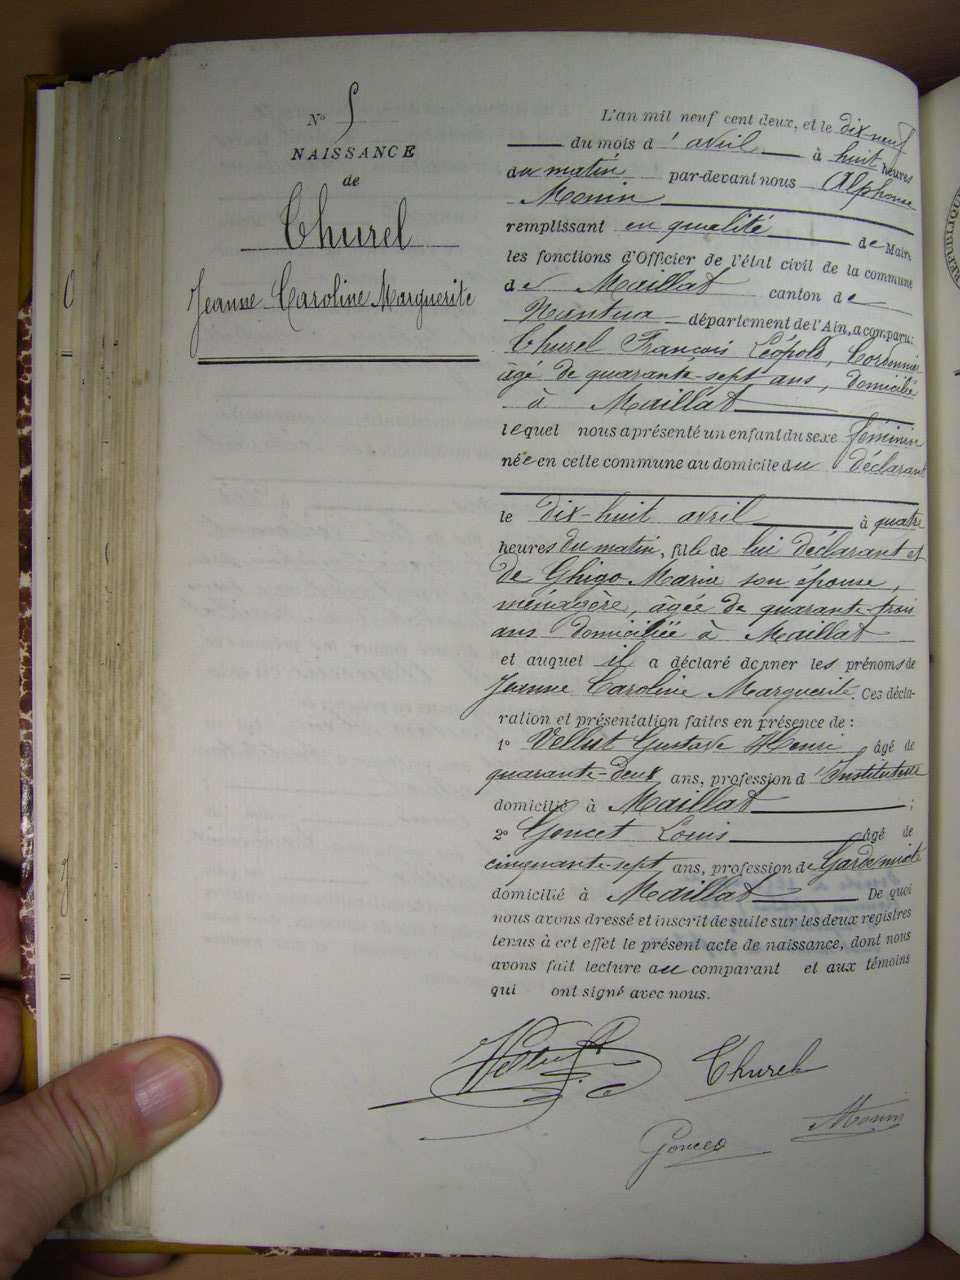 N° 5
NAISSANCE
de
Thurel
Jeanne Caroline Marguerite
L'an mil neuf cent deux, et le dix-neuf
du mois d'avril à huit heures
du matin par-devant nous Alphonse
Monin
remplissant en qualité de Maire
les fonctions d'Officier de l'état civil de la commune
de Maillat canton de
Nantua département de l'Ain, a comparu:
Thurel François Léopold, Cordonnier
âgé de quarante-sept ans, domicilié
à Maillat
lequel nous a présenté un enfant du sexe féminin
née en cette commune au domicile du déclarant
le dix-huit avril à quatre
heures du matin, fille de lui déclarant et
de Ghigo Maria son épouse,
ménagère, âgée de quarante-trois
ans domiciliée à Maillat
et auquel il a déclaré donner les prénoms de
Jeanne Caroline Marguerite. Ces décla-
ration et présentation faites en présence de:
1° Vellut Gustave Henri âgé de
quarante-deux ans, profession d'Instituteur
domicilié à Maillat ;
2° Goncet Louis âgé de
cinquante-sept ans, profession de Garde-mixte
domicilié à Maillat De quoi
nous avons dressé et inscrit de suite sur les deux registres
tenus à cet effet le présent acte de naissance, dont nous
avons fait lecture au comparant et aux témoins
qui ont signé avec nous.
Vellut Thurel
Goncet Monin
RÉPUBLIQUE